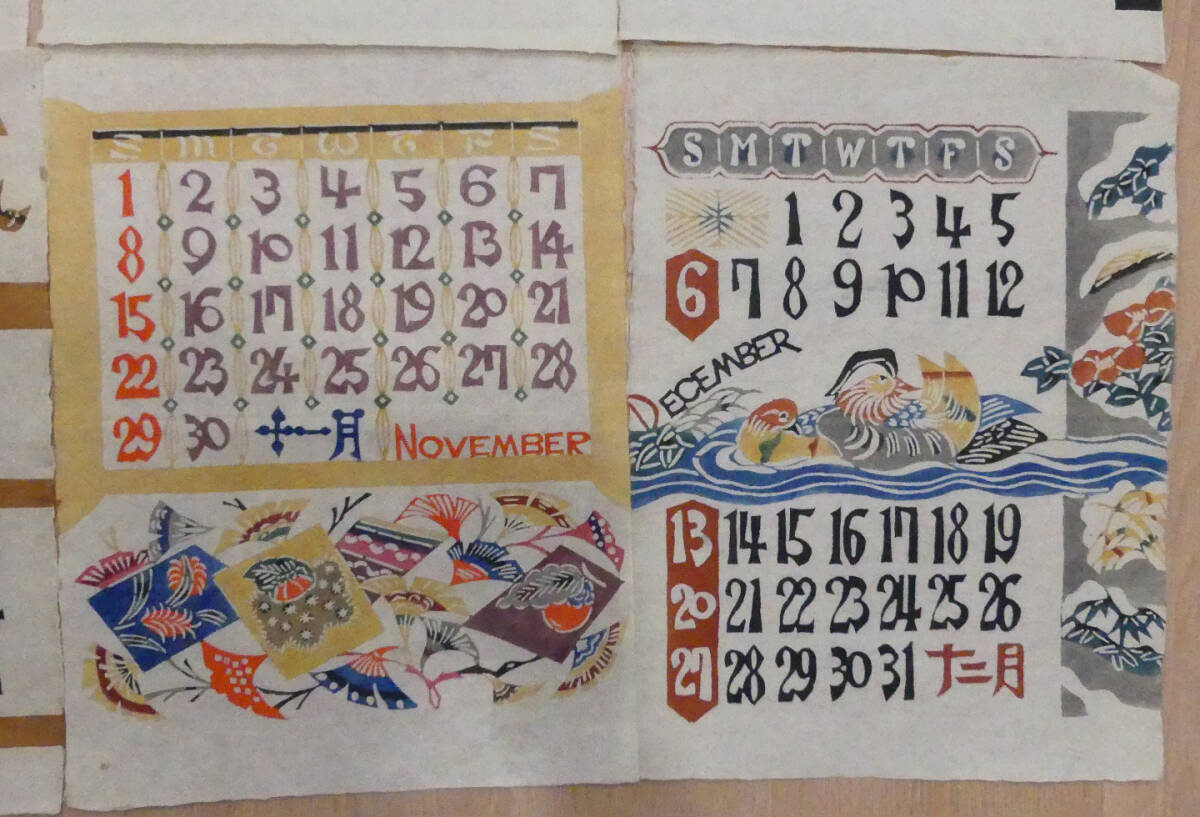 S M T W T F S
1 2 3 4 5 6 7
8 9 10 11 12 13 14
15 16 17 18 19 20 21
22 23 24 25 26 27 28
29 30 十一月 NOVEMBER
S M T W T F S
1 2 3 4 5
6 7 8 9 10 11 12
DECEMBER
13 14 15 16 17 18 19
20 21 22 23 24 25 26
27 28 29 30 31 十二月